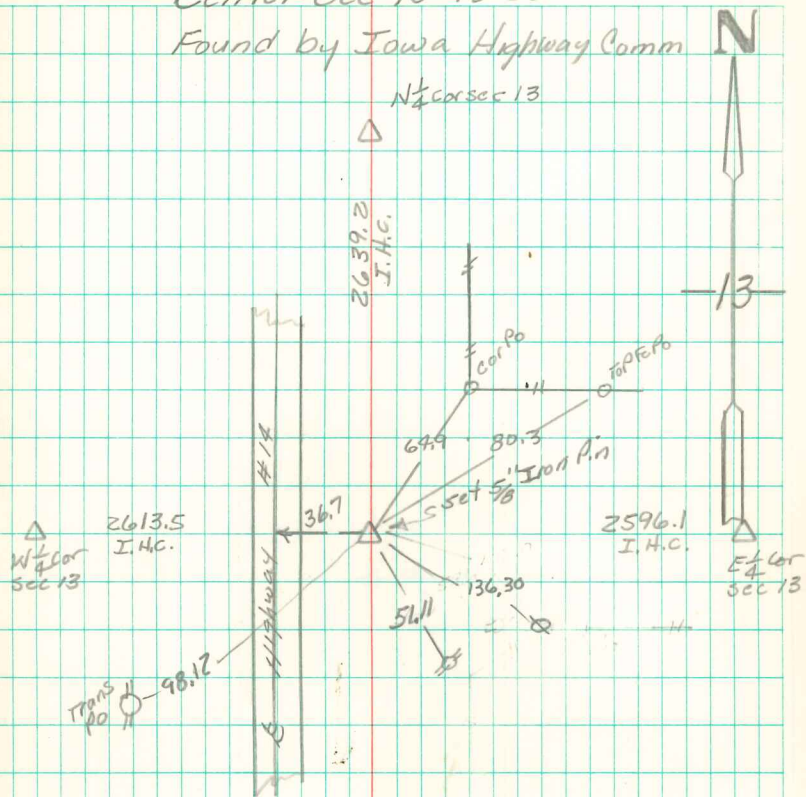 Found by Iowa Highway Comm
N
N 1/4 cor sec 13
2639.2
I.H.C.
13
cor Po
Top Fc Po
64.9
80.3
Set 5/8" Iron Pin
36.7
2613.5
I.H.C.
2596.1
I.H.C.
W 1/4 cor
sec 13
E 1/4 cor
sec 13
136.30
51.11
98.12
Trans
po
℄ Highway #14